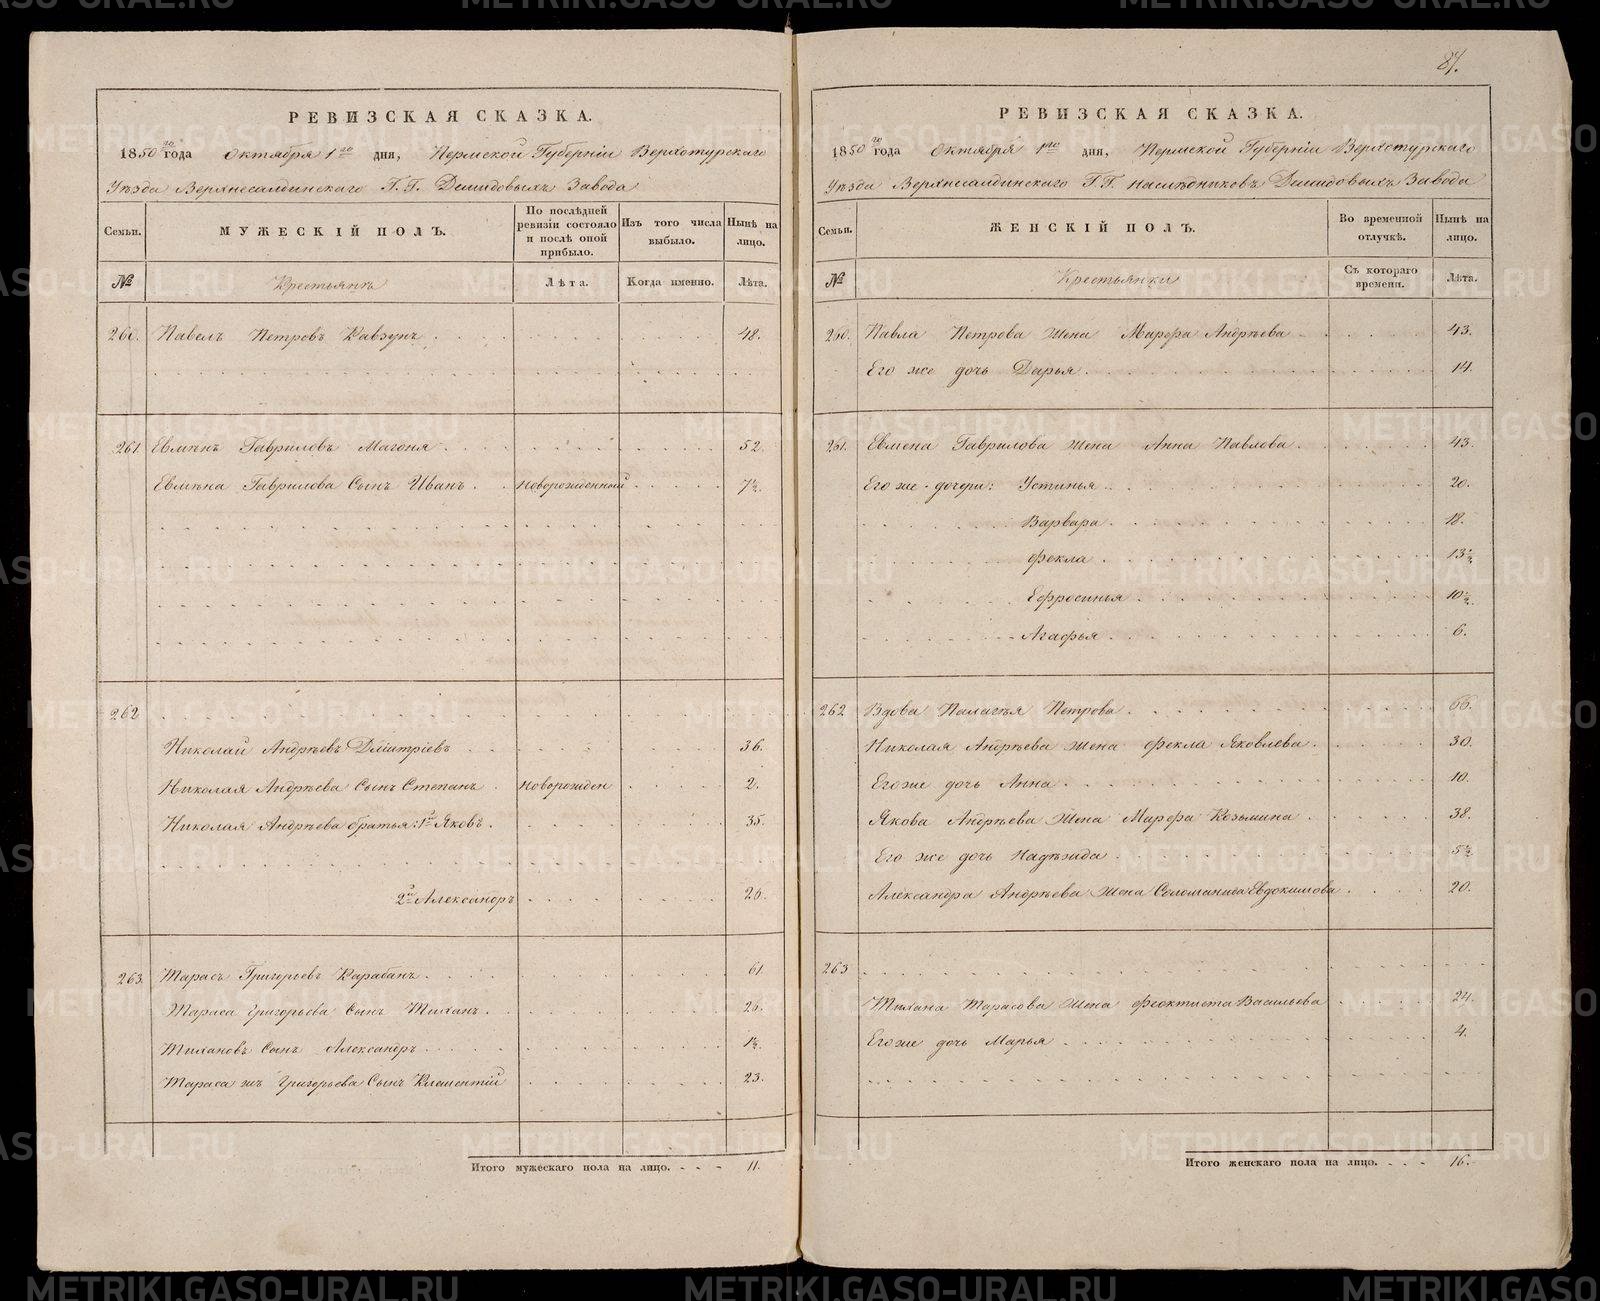 87.
РЕВИЗСКАЯ СКАЗКА.
1850го года Октября 1го дня, Пермской Губернiи Верхотурскаго
Уѣзда Верхнесалдинскаго Г.Г. Демидовыхъ Завода
Семьи. МУЖЕСКІЙ ПОЛЪ. По послѣдней ревизіи состояло и послѣ оной прибыло. Изъ того числа выбыло. Нынѣ на лицо.
№ Крестьянъ Лѣта. Когда именно. Лѣта.
260. Павелъ Петровъ Кавзунъ 48.
261. Евмѣнъ Гавриловъ Магоня 52.
Евмѣна Гаврилова Сынъ Иванъ Новорожденный 7½.
262
Николай Андрѣевъ Дмитріевъ 36.
Николая Андрѣева Сынъ Степанъ Новорожден 2.
Николая Андрѣева братья: 1й Яковъ. 35.
2й Александръ 26.
263. Тарасъ Григорьевъ Карабанъ 61.
Тараса Григорьева Сынъ Тиханъ. 26.
Тихановъ Сынъ Александръ 1½.
Тараса жъ Григорьева Сынъ Климентій 23.
Итого мужескаго пола на лицо. 11.
РЕВИЗСКАЯ СКАЗКА.
1850го года Октября 1го дня, Пермской Губерніи Верхотурскаго
Уѣзда Верхнесалдинскаго Г.Г. наслѣдниковъ Демидовыхъ Завода
Семьи. ЖЕНСКІЙ ПОЛЪ. Во временной отлучкѣ. Нынѣ на лицо.
№ Крестьянки Съ котораго времени. Лѣта.
260. Павла Петрова жена Марфа Андрѣева 43.
Его же дочь Дарья 14.
261. Евмена Гаврилова жена Анна Павлова 43.
Его же дочери: Устинья 20.
Варвара 18.
Фекла 13½
Ефросинья 10½.
Агафья 6.
262 Вдова Палагѣя Петрова 66.
Николая Андрѣева жена Фекла Яковлева 30.
Его же дочь Анна 10.
Якова Андрѣева жена Марфа Козьмина 38.
Его же дочь Надѣжда 5½
Александра Андрѣева жена Соломанида Евдокимова 20.
263
Тихана Тарасова жена Феоктиста Васильева 24.
Его же дочь Марья 4.
Итого женскаго пола на лицо. 16.
METRIKI.GASO-URAL.RU